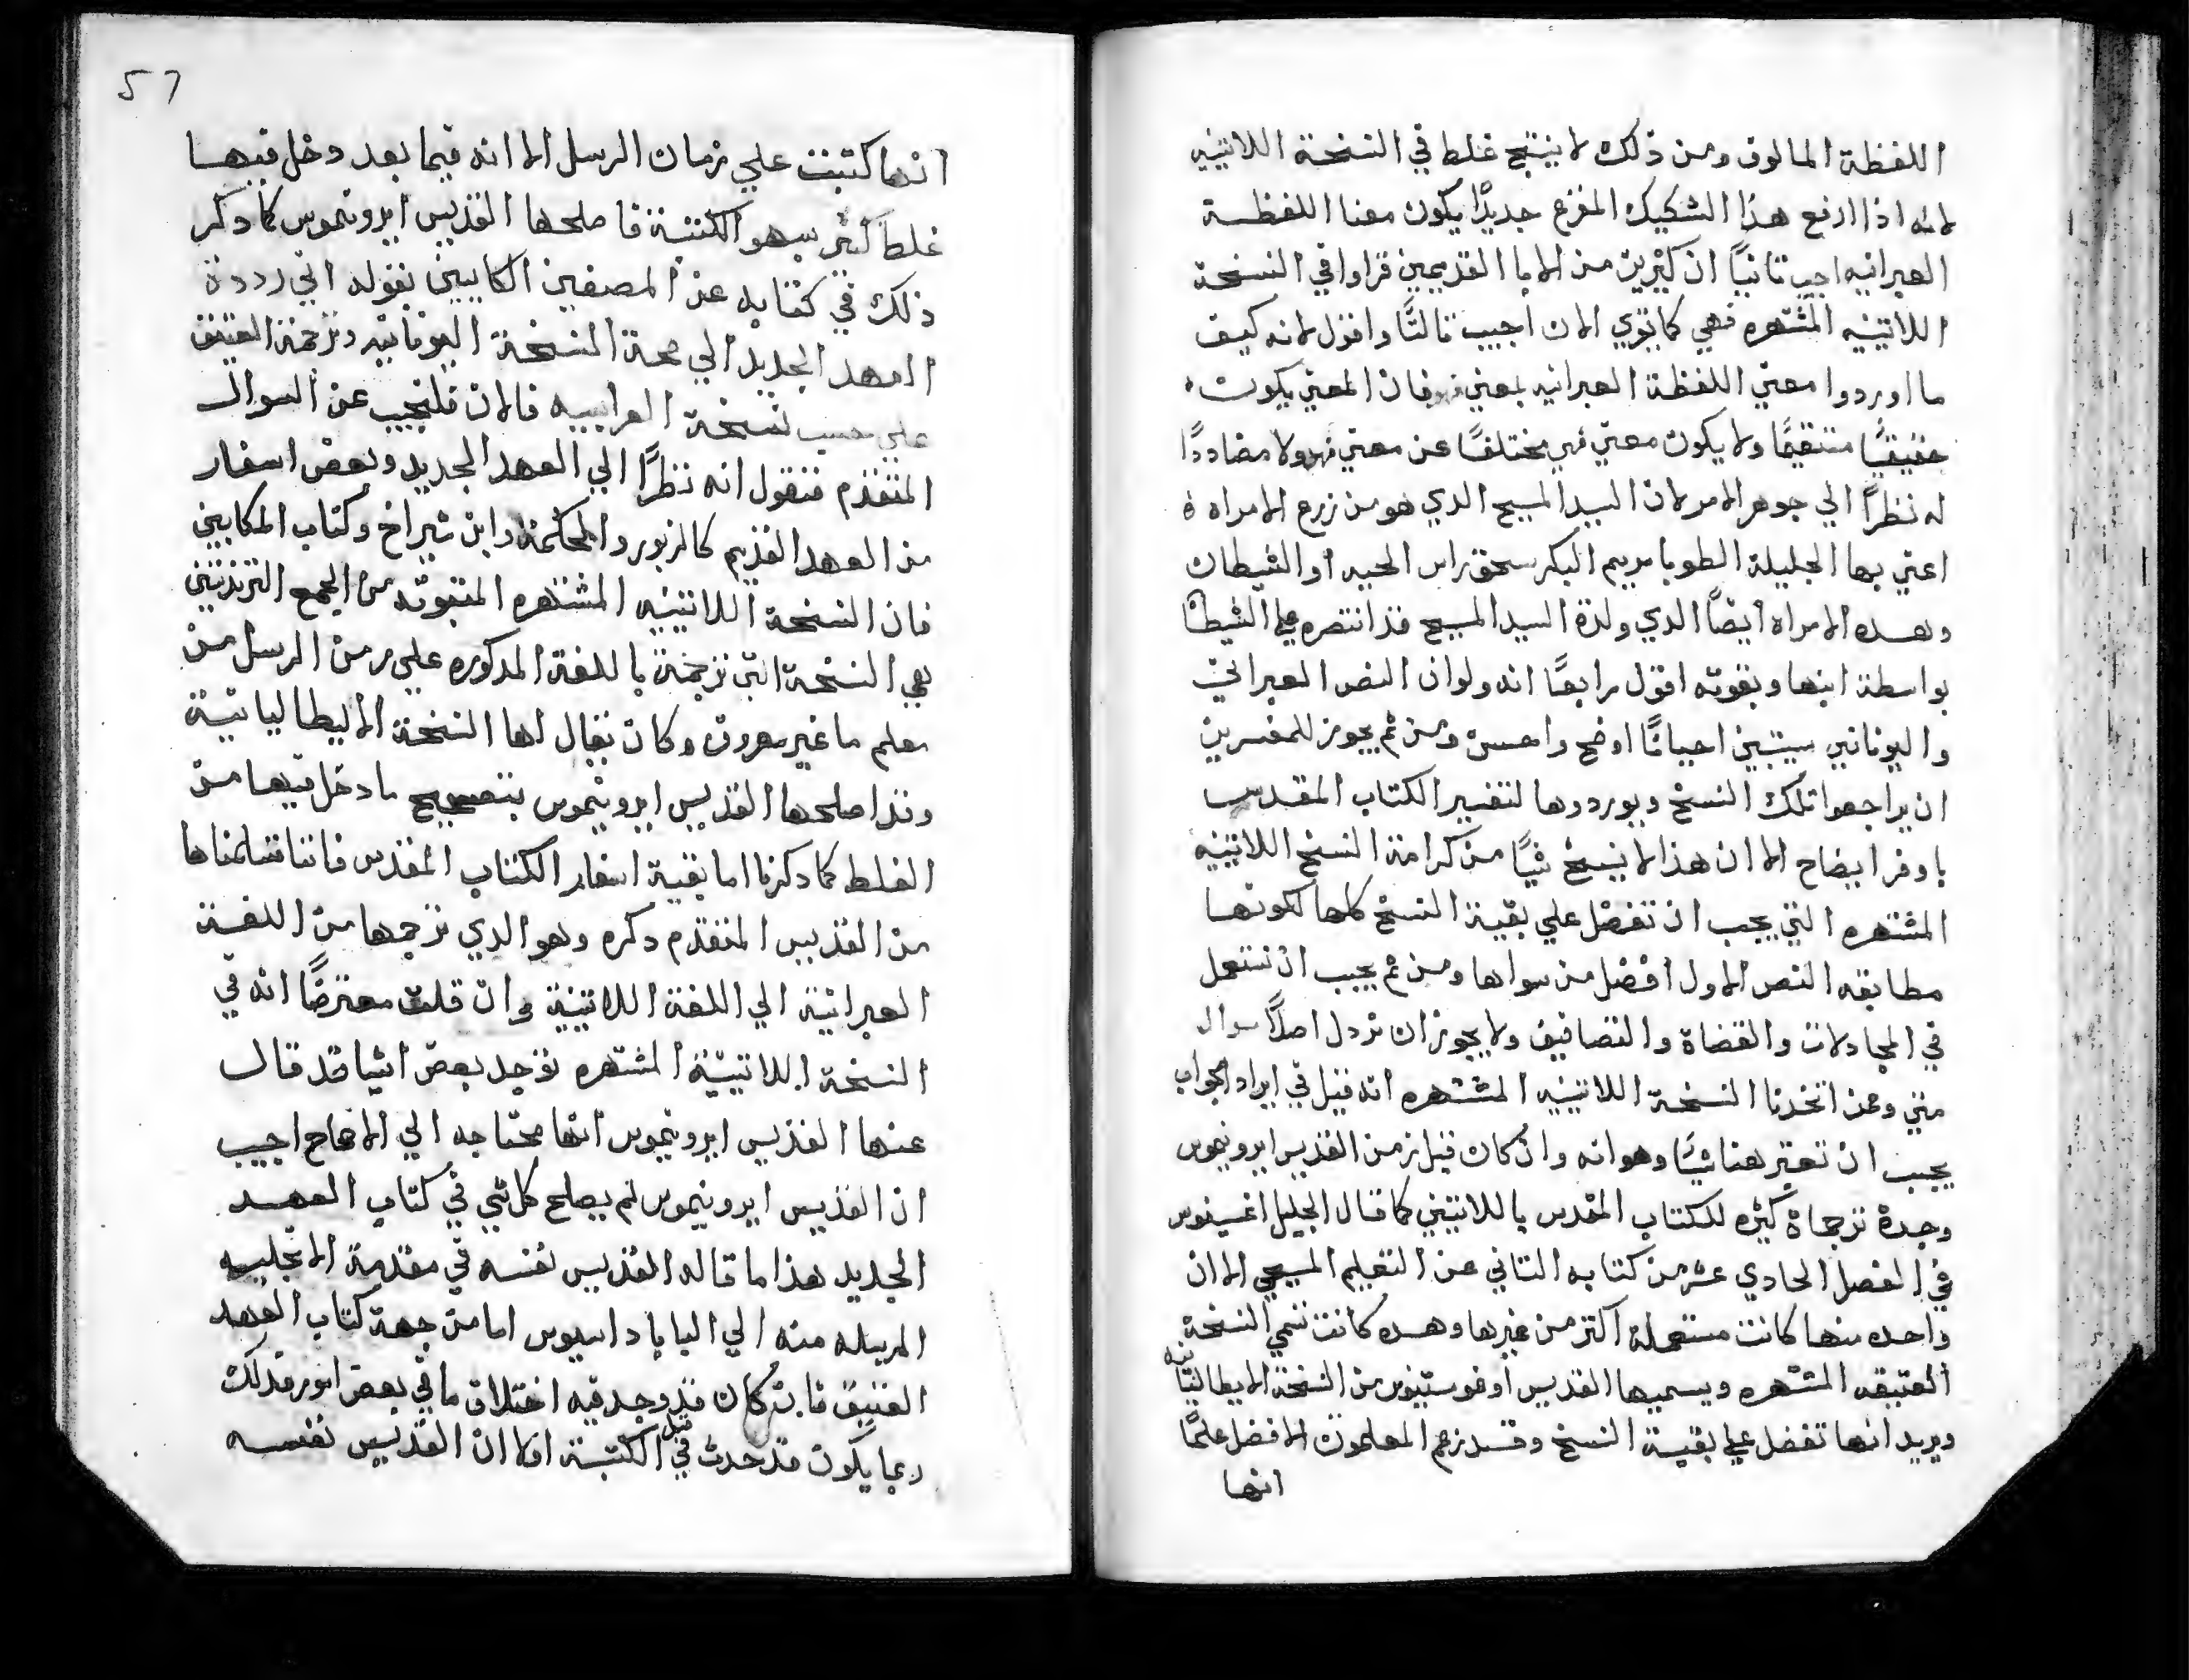 اللفظة المالوف ومن ذلك لا ينتج غلط في النسخة اللاتينيه
لانه اذا ارفع هذا الشكيك المفرع جديدًا يكون معنا اللفظة
العبرانيه اجيب تانيًا ان كثيرين من الابا القديمين قراوا في النسخة
اللاتينيه المشتهره فهي كما تري الان اجيب تالتًا واقول لانه كيف
ما اوردوا معني اللفظة العبرانيه بمعني فهو فان المعني يكون
حقيقيًا مستقيمًا ولا يكون معني هي مختلفًا عن معني هو ولا مضاددًا
له نظرًا الي جوهر الامر لان السيد المسيح الدي هو من زرع الامراه
اعني بها الجليلة الطوبا مريم البكر سحق راس الحيه او الشيطان
وهده الامراه ايضًا الدي ولدة السيد المسيح قد انتصره علي الشيطا
بواسطة ابنها وبقوته اقول رابعًا انه ولو ان النص العبراني
واليوناني سيتبين احيانًا اوضح واحسن ومن ثم يجوز للمفسرين
ان يراجعوا تلك النسخ ويوردوها لتفسير الكتاب المقدس
باوفر ايضاح الا ان هذا لا ينسخ شيًا من كرامة النسخ اللاتينيه
المشتهره التي يجب ان تفضل علي بقية النسخ كلها لكونها
مطابقه النص الاول افضل من سواها ومن ثم يجب ان تستعمل
في المجادلات والقضاة والتصانيف ولا يجوز ان تردل اصلًا سوال
متي وممن اتخدنا النسخة اللاتينيه المشتهره انه قبل في ايراد الجواب
يجب ان تعتبر هنا شيًا وهو انه وان كان قبل زمن القديس ايرونيموس
وجدة ترجماة كثيره للكتاب المقدس باللاتيني كما قال الجليل اغسينوس
في الفصل الحادي عشر من كتابه التاني عن التعليم المسيحي الا ان
واحده منها كانت مستعملة اكتر من غيرها وهده كانت تسمي النسخة
العتيقه المشتهره ويسميها القديس اوغوستينوس من النسخة الايطاليانيه
ويريد انها تفضل علي بقية النسخ وقد زعم المعلمون الافضل علمًا
انها
57
انها كتبت علي زمان الرسل الا انه فيما بعد دخل فيها
غلط كثير بسهو الكتبة فاصلحها القديس ايرونيموس كما دكر
ذلك في كتابه عن المصنفين الكايبين بقوله اني رددة
العهد الجديد الي صحة النسخة اليونانيه وترجمة العتيق
علي حسب نسخة العرانييه فالان فلنجيب عن السوال
المتقدم فنقول انه نظرًا الي العهد الجديد وبعض اسفار
من العهد القديم كالزبور والحكمة وابن شيراخ وكتاب المكابين
فان النسخة اللاتينيه المشتهره المتبوته من المجمع التريدنتيني
هي النسخة التي ترجمة باللغة المدكوره علي زمن الرسل من
معلم ما غير معروف وكان يقال لها النسخة الايطاليانية
وقد اصلحها القديس ايرونيموس بتصحيح ما دخل فيها من
الغلط كما دكرنا اما بقية اسفار الكتاب المقدس فاننا تسلمناها
من القديس المتقدم دكره وهو الدي ترجمها من اللغة
العبرانية الي اللغة اللاتينية وان قلت معترضًا انه في
النسخة اللاتينية المشتهره توجد بعض اشيا قد قال
عنها القديس ايرونيموس انها محتاجه الي الاصلاح اجيب
ان القديس ايرونيموس لم يصلح كل شي في كتاب العهد
الجديد هذا ما قاله القديس نفسه في مقدمة الانجليه
المرسله منه الي البابا داسيوس اما من جهة كتاب العهد
العتيق فان كان قد وجد فيه اختلاف ما في بعض امور فدلك
ربما يكون قد حدث في قبل الكتبة اولا ان القديس نفسه